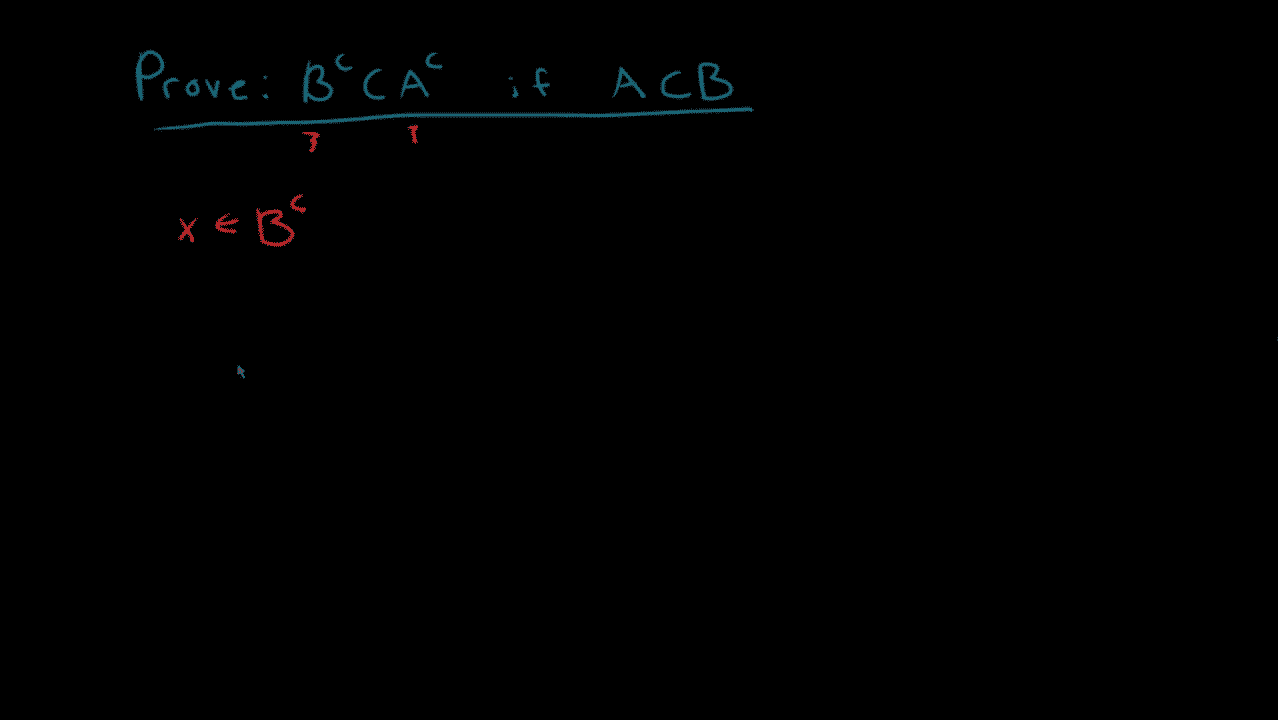 Prove: Bᶜ ⊂ Aᶜ if A ⊂ B
x ∈ Bᶜ